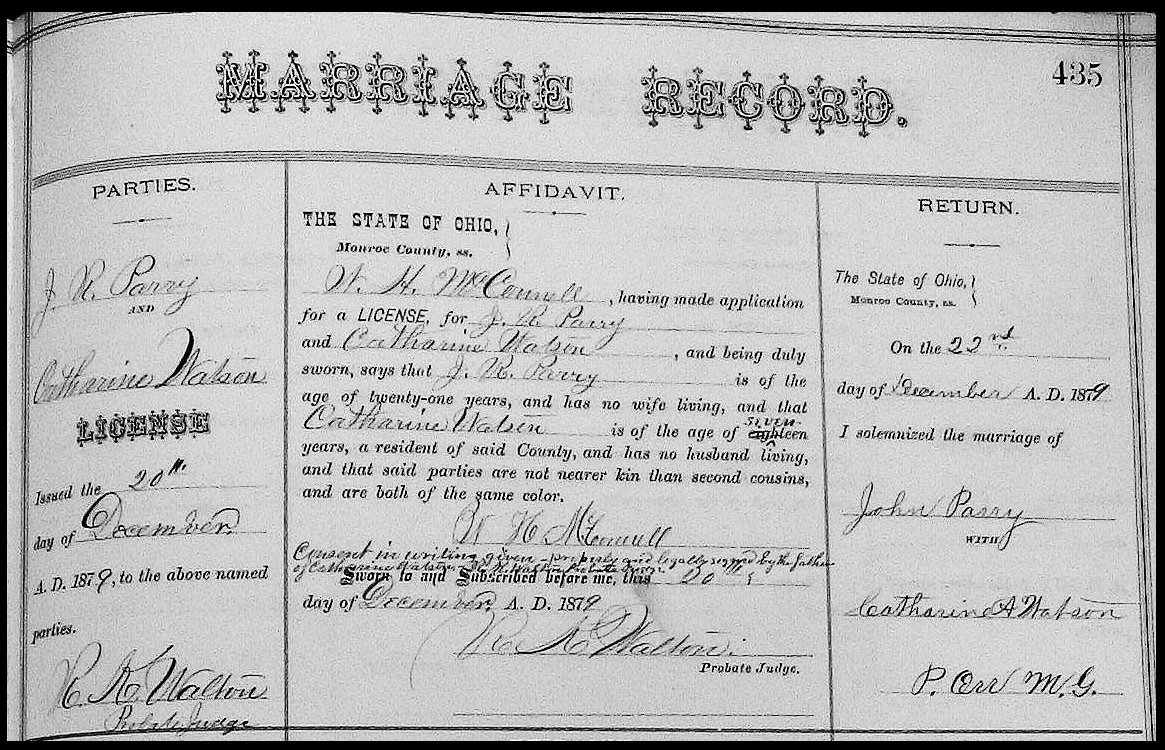 435
MARRIAGE RECORD.
PARTIES.
J. R. Parry
AND
Catharine Watson
LICENSE
Issued the 20th
day of December
A. D. 1879, to the above named
parties.
R. K. Walton
Probate Judge
AFFIDAVIT.
THE STATE OF OHIO,
Monroe County, ss.
W. H. McConnell, having made application
for a LICENSE, for J. R. Parry
and Catharine Watson, and being duly
sworn, says that J. R. Parry is of the
age of twenty-one years, and has no wife living, and that
seven
Catharine Watson is of the age of eighteen
years, a resident of said County, and has no husband living,
and that said parties are not nearer kin than second cousins,
and are both of the same color.
W H McConnell
Consent in writing given properly and legally signed by the father
of Catharine Watson R. K. Walton Probate Judge
Sworn to and Subscribed before me, this 20th
day of December A. D. 1879
R K Walton
Probate Judge.
RETURN.
The State of Ohio,
Monroe County, ss.
On the 22nd
day of December A. D. 1879
I solemnized the marriage of
John Parry
WITH
Catharine A Watson
P. Orr M. G.